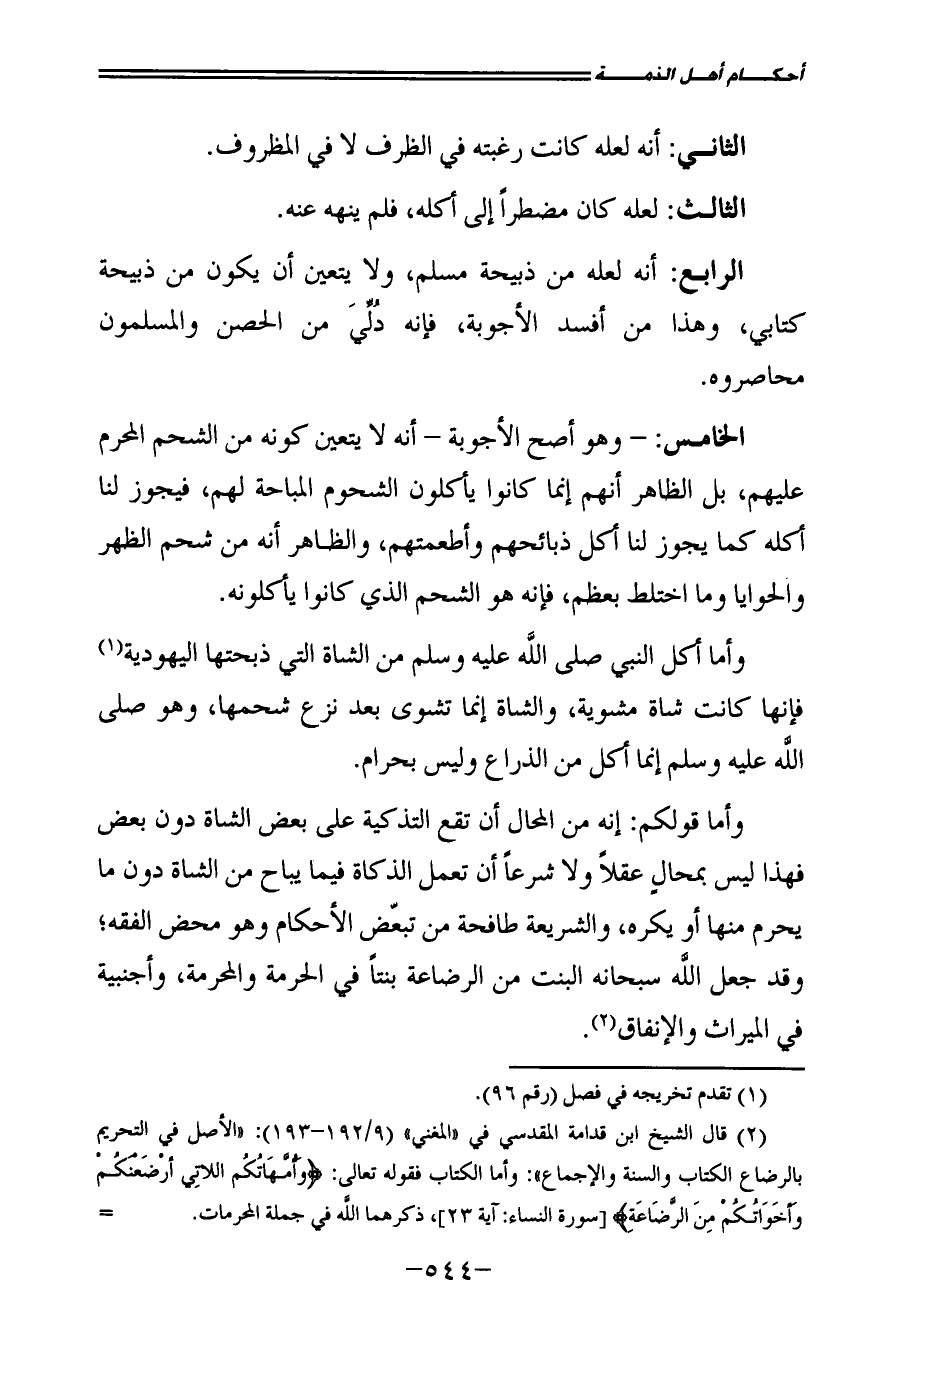 أحكـــــام أهـــل الذمـــــة
الثانــي: أنه لعله كانت رغبته في الظرف لا في المظروف.
الثالـث: لعله كان مضطراً إلى أكله، فلم ينهه عنه.
الرابـع: أنه لعله من ذبيحة مسلم، ولا يتعين أن يكون من ذبيحة
كتابي، وهذا من أفسد الأجوبة، فإنه دُلِّيَ من الحصن والمسلمون
محاصروه.
الخامـس: – وهو أصح الأجوبة – أنه لا يتعين كونه من الشحم المحرم
عليهم، بل الظاهر أنهم إنما كانوا يأكلون الشحوم المباحة لهم، فيجوز لنا
أكله كما يجوز لنا أكل ذبائحهم وأطعمتهم، والظـاهر أنه من شحم الظهر
والحوايا وما اختلط بعظم، فإنه هو الشحم الذي كانوا يأكلونه.
وأما أكل النبي صلى اللَّه عليه وسلم من الشاة التي ذبحتها اليهودية(١)
فإنها كانت شاة مشوية، والشاة إنما تشوى بعد نزع شحمها، وهو صلى
اللَّه عليه وسلم إنما أكل من الذراع وليس بحرام.
وأما قولكم: إنه من المحال أن تقع التذكية على بعض الشاة دون بعض
فهذا ليس بمحالٍ عقلاً ولا شرعاً أن تعمل الذكاة فيما يباح من الشاة دون ما
يحرم منها أو يكره، والشريعة طافحة من تبعّض الأحكام وهو محض الفقه؛
وقد جعل اللَّه سبحانه البنت من الرضاعة بنتاً في الحرمة والمحرمة، وأجنبية
في الميراث والإنفاق(٢).
(١) تقدم تخريجه في فصل (رقم ٩٦).
(٢) قال الشيخ ابن قدامة المقدسي في «المغني» (٩/١٩٢–١٩٣): «الأصل في التحريم
بالرضاع الكتاب والسنة والإجماع»: وأما الكتاب فقوله تعالى: ﴿وَأُمَّهَاتُكُم اللاتِي أَرْضَعْنَكُـمْ
وَأَخَوَاتُـكُمْ مِنَ الرَّضَاعَةِ﴾ [سورة النساء: آية ٢٣]، ذكرهما اللَّه في جملة المحرمات. =
–٥٤٤–